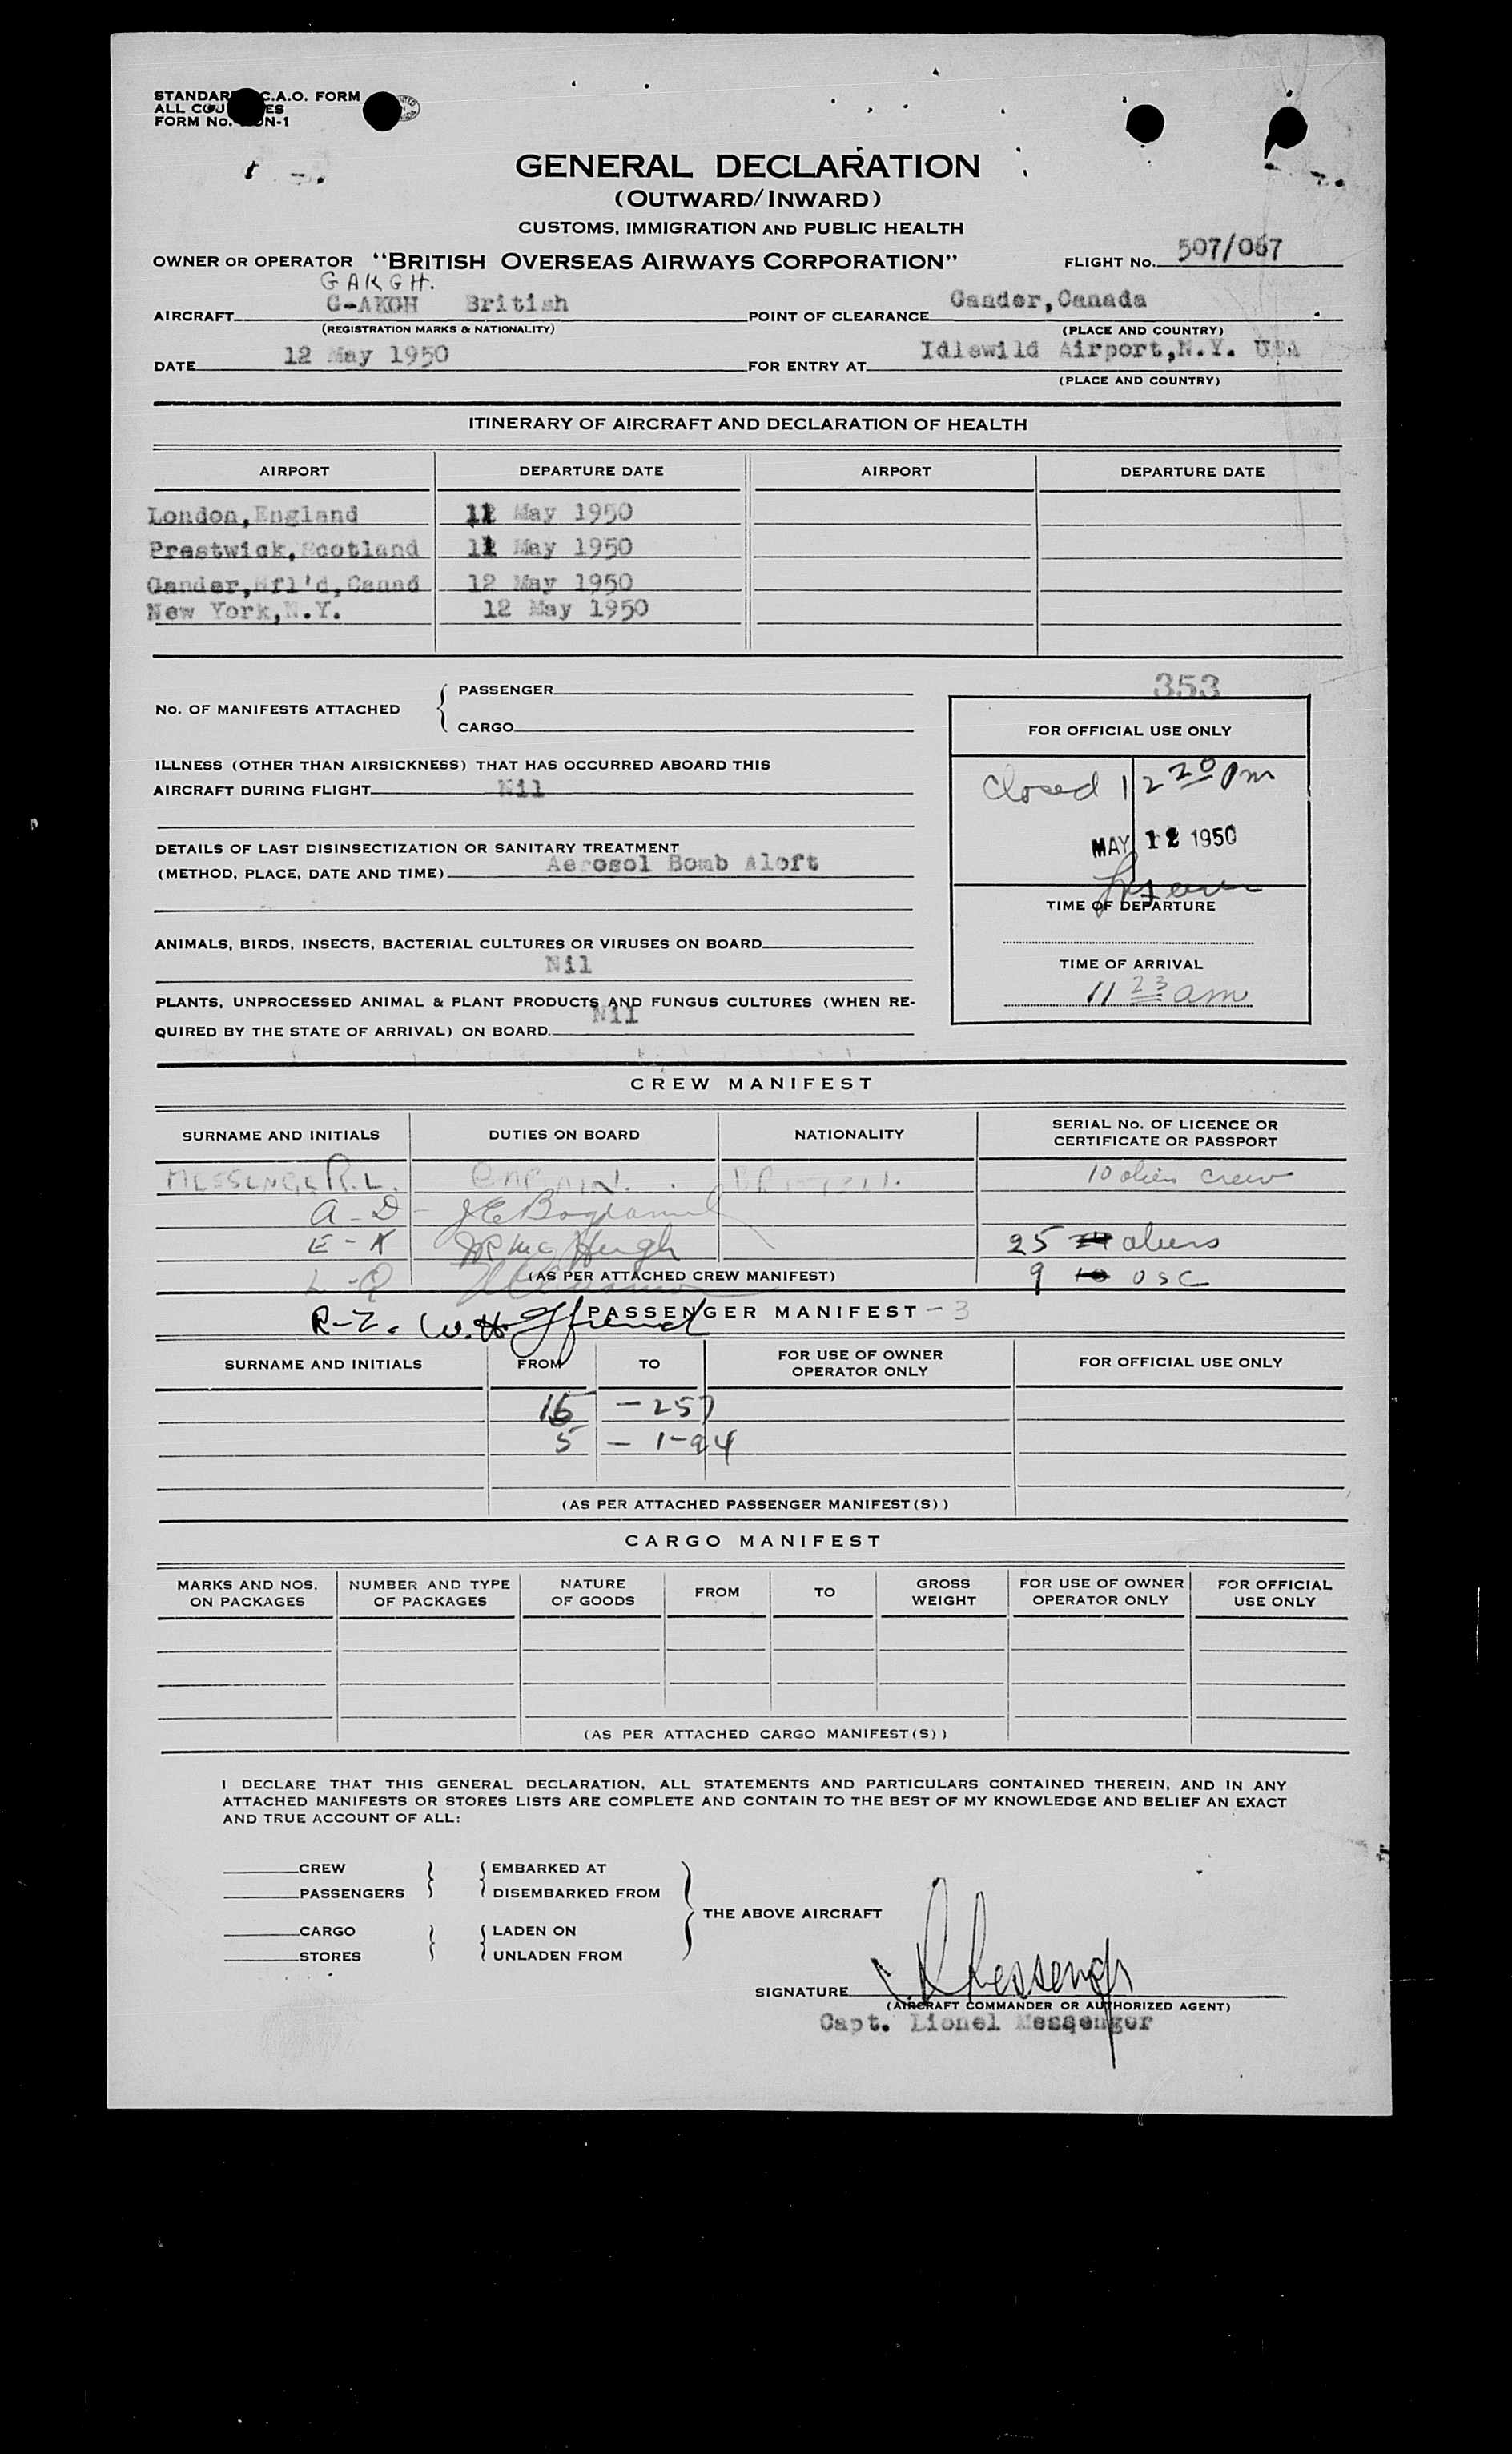 STANDARD C.A.O. FORM
ALL COUNTRIES
FORM No. N-1
GENERAL DECLARATION
(OUTWARD/INWARD)
CUSTOMS, IMMIGRATION AND PUBLIC HEALTH
OWNER OR OPERATOR "BRITISH OVERSEAS AIRWAYS CORPORATION" FLIGHT No. 507/067
GAKGH.
AIRCRAFT G-AKGH British POINT OF CLEARANCE Gander, Canada
(REGISTRATION MARKS & NATIONALITY) (PLACE AND COUNTRY)
DATE 12 May 1950 FOR ENTRY AT Idlewild Airport, N.Y. USA
(PLACE AND COUNTRY)
ITINERARY OF AIRCRAFT AND DECLARATION OF HEALTH
AIRPORT DEPARTURE DATE AIRPORT DEPARTURE DATE
London, England 11 May 1950
Prestwick, Scotland 11 May 1950
Gander, Nfl'd, Canad 12 May 1950
New York, N.Y. 12 May 1950
353
No. OF MANIFESTS ATTACHED PASSENGER
CARGO
FOR OFFICIAL USE ONLY
Closed 12 20 pm
MAY 12 1950
TIME OF DEPARTURE
TIME OF ARRIVAL
11 23 am
ILLNESS (OTHER THAN AIRSICKNESS) THAT HAS OCCURRED ABOARD THIS
AIRCRAFT DURING FLIGHT Nil
DETAILS OF LAST DISINSECTIZATION OR SANITARY TREATMENT
(METHOD, PLACE, DATE AND TIME) Aerosol Bomb Aloft
ANIMALS, BIRDS, INSECTS, BACTERIAL CULTURES OR VIRUSES ON BOARD
Nil
PLANTS, UNPROCESSED ANIMAL & PLANT PRODUCTS AND FUNGUS CULTURES (WHEN RE-
QUIRED BY THE STATE OF ARRIVAL) ON BOARD. Nil
CREW MANIFEST
SURNAME AND INITIALS DUTIES ON BOARD NATIONALITY SERIAL No. OF LICENCE OR
CERTIFICATE OR PASSPORT
MESSENGER.L. CAPTAIN. BRITISH. 10 alien crew
A-D-
E-K McHugh 25 24 aliens
L-Q (AS PER ATTACHED CREW MANIFEST) 9 10 USC
R-Z. W.H.
PASSENGER MANIFEST - 3
SURNAME AND INITIALS FROM TO FOR USE OF OWNER
OPERATOR ONLY FOR OFFICIAL USE ONLY
16 - 257
5 - 1-94
(AS PER ATTACHED PASSENGER MANIFEST(S))
CARGO MANIFEST
MARKS AND NOS.
ON PACKAGES NUMBER AND TYPE
OF PACKAGES NATURE
OF GOODS FROM TO GROSS
WEIGHT FOR USE OF OWNER
OPERATOR ONLY FOR OFFICIAL
USE ONLY
(AS PER ATTACHED CARGO MANIFEST(S))
I DECLARE THAT THIS GENERAL DECLARATION, ALL STATEMENTS AND PARTICULARS CONTAINED THEREIN, AND IN ANY
ATTACHED MANIFESTS OR STORES LISTS ARE COMPLETE AND CONTAIN TO THE BEST OF MY KNOWLEDGE AND BELIEF AN EXACT
AND TRUE ACCOUNT OF ALL:
CREW EMBARKED AT
PASSENGERS DISEMBARKED FROM
THE ABOVE AIRCRAFT
CARGO LADEN ON
STORES UNLADEN FROM
SIGNATURE L Messenger
(AIRCRAFT COMMANDER OR AUTHORIZED AGENT)
Capt. Lionel Messenger